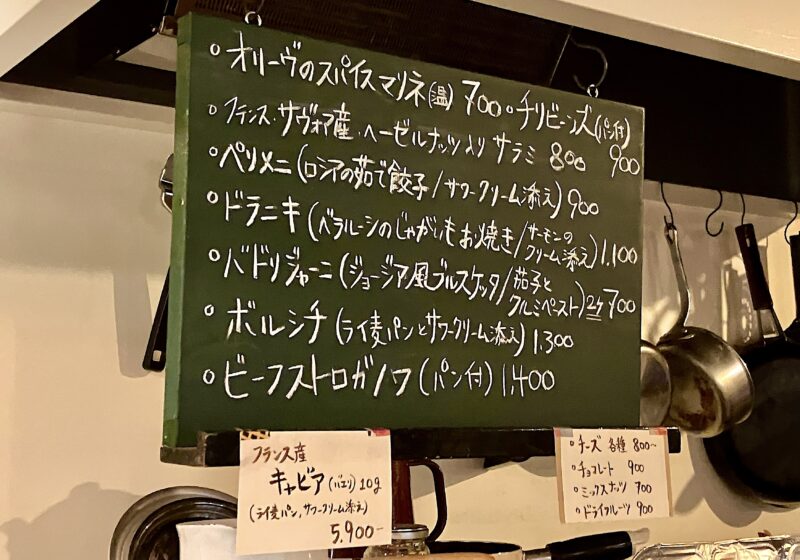 ○オリーヴのスパイスマリネ(温) 700 ○チリビーンズ(パン付) 900
○フランス・サヴォア産、ヘーゼルナッツ入り サラミ 800
○ペリメニ(ロシアの茹で餃子/サワークリーム添え) 900
○ドラニキ(ベラルーシのじゃがいもお焼き/サーモンのクリーム添え) 1.100
○バドリジャーニ(ジョージア風ブルスケッタ/茄子とクルミペースト) 2ケ 700
○ボルシチ(ライ麦パンとサワークリーム添え) 1.300
○ビーフストロガノフ(パン付) 1,400
フランス産
キャビア(バエリ) 10g
(ライ麦パン、サワークリーム添え)
5.900-
・チーズ 各種 800~
・チョコレート 900
・ミックスナッツ 700
・ドライフルーツ 900